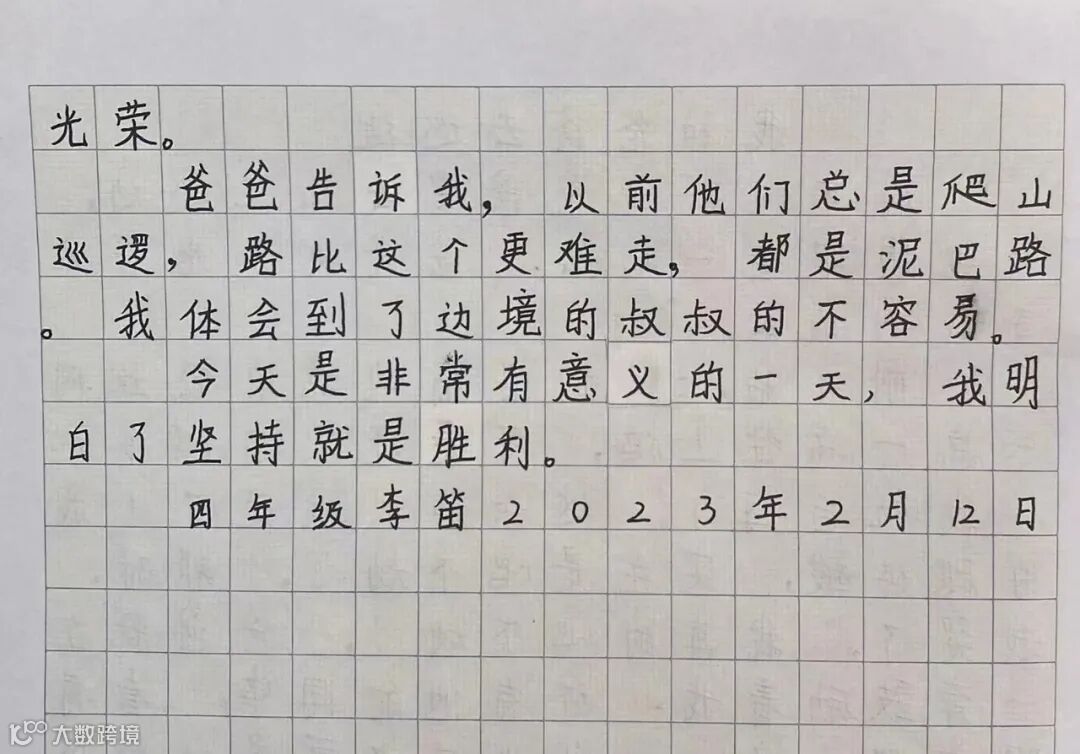 光荣。
爸爸告诉我，以前他们总是爬山
巡逻，路比这个更难走，都是泥巴路
。我体会到了边境的叔叔的不容易。
今天是非常有意义的一天，我明
白了坚持就是胜利。
四年级李笛2023年2月12日
大数跨境